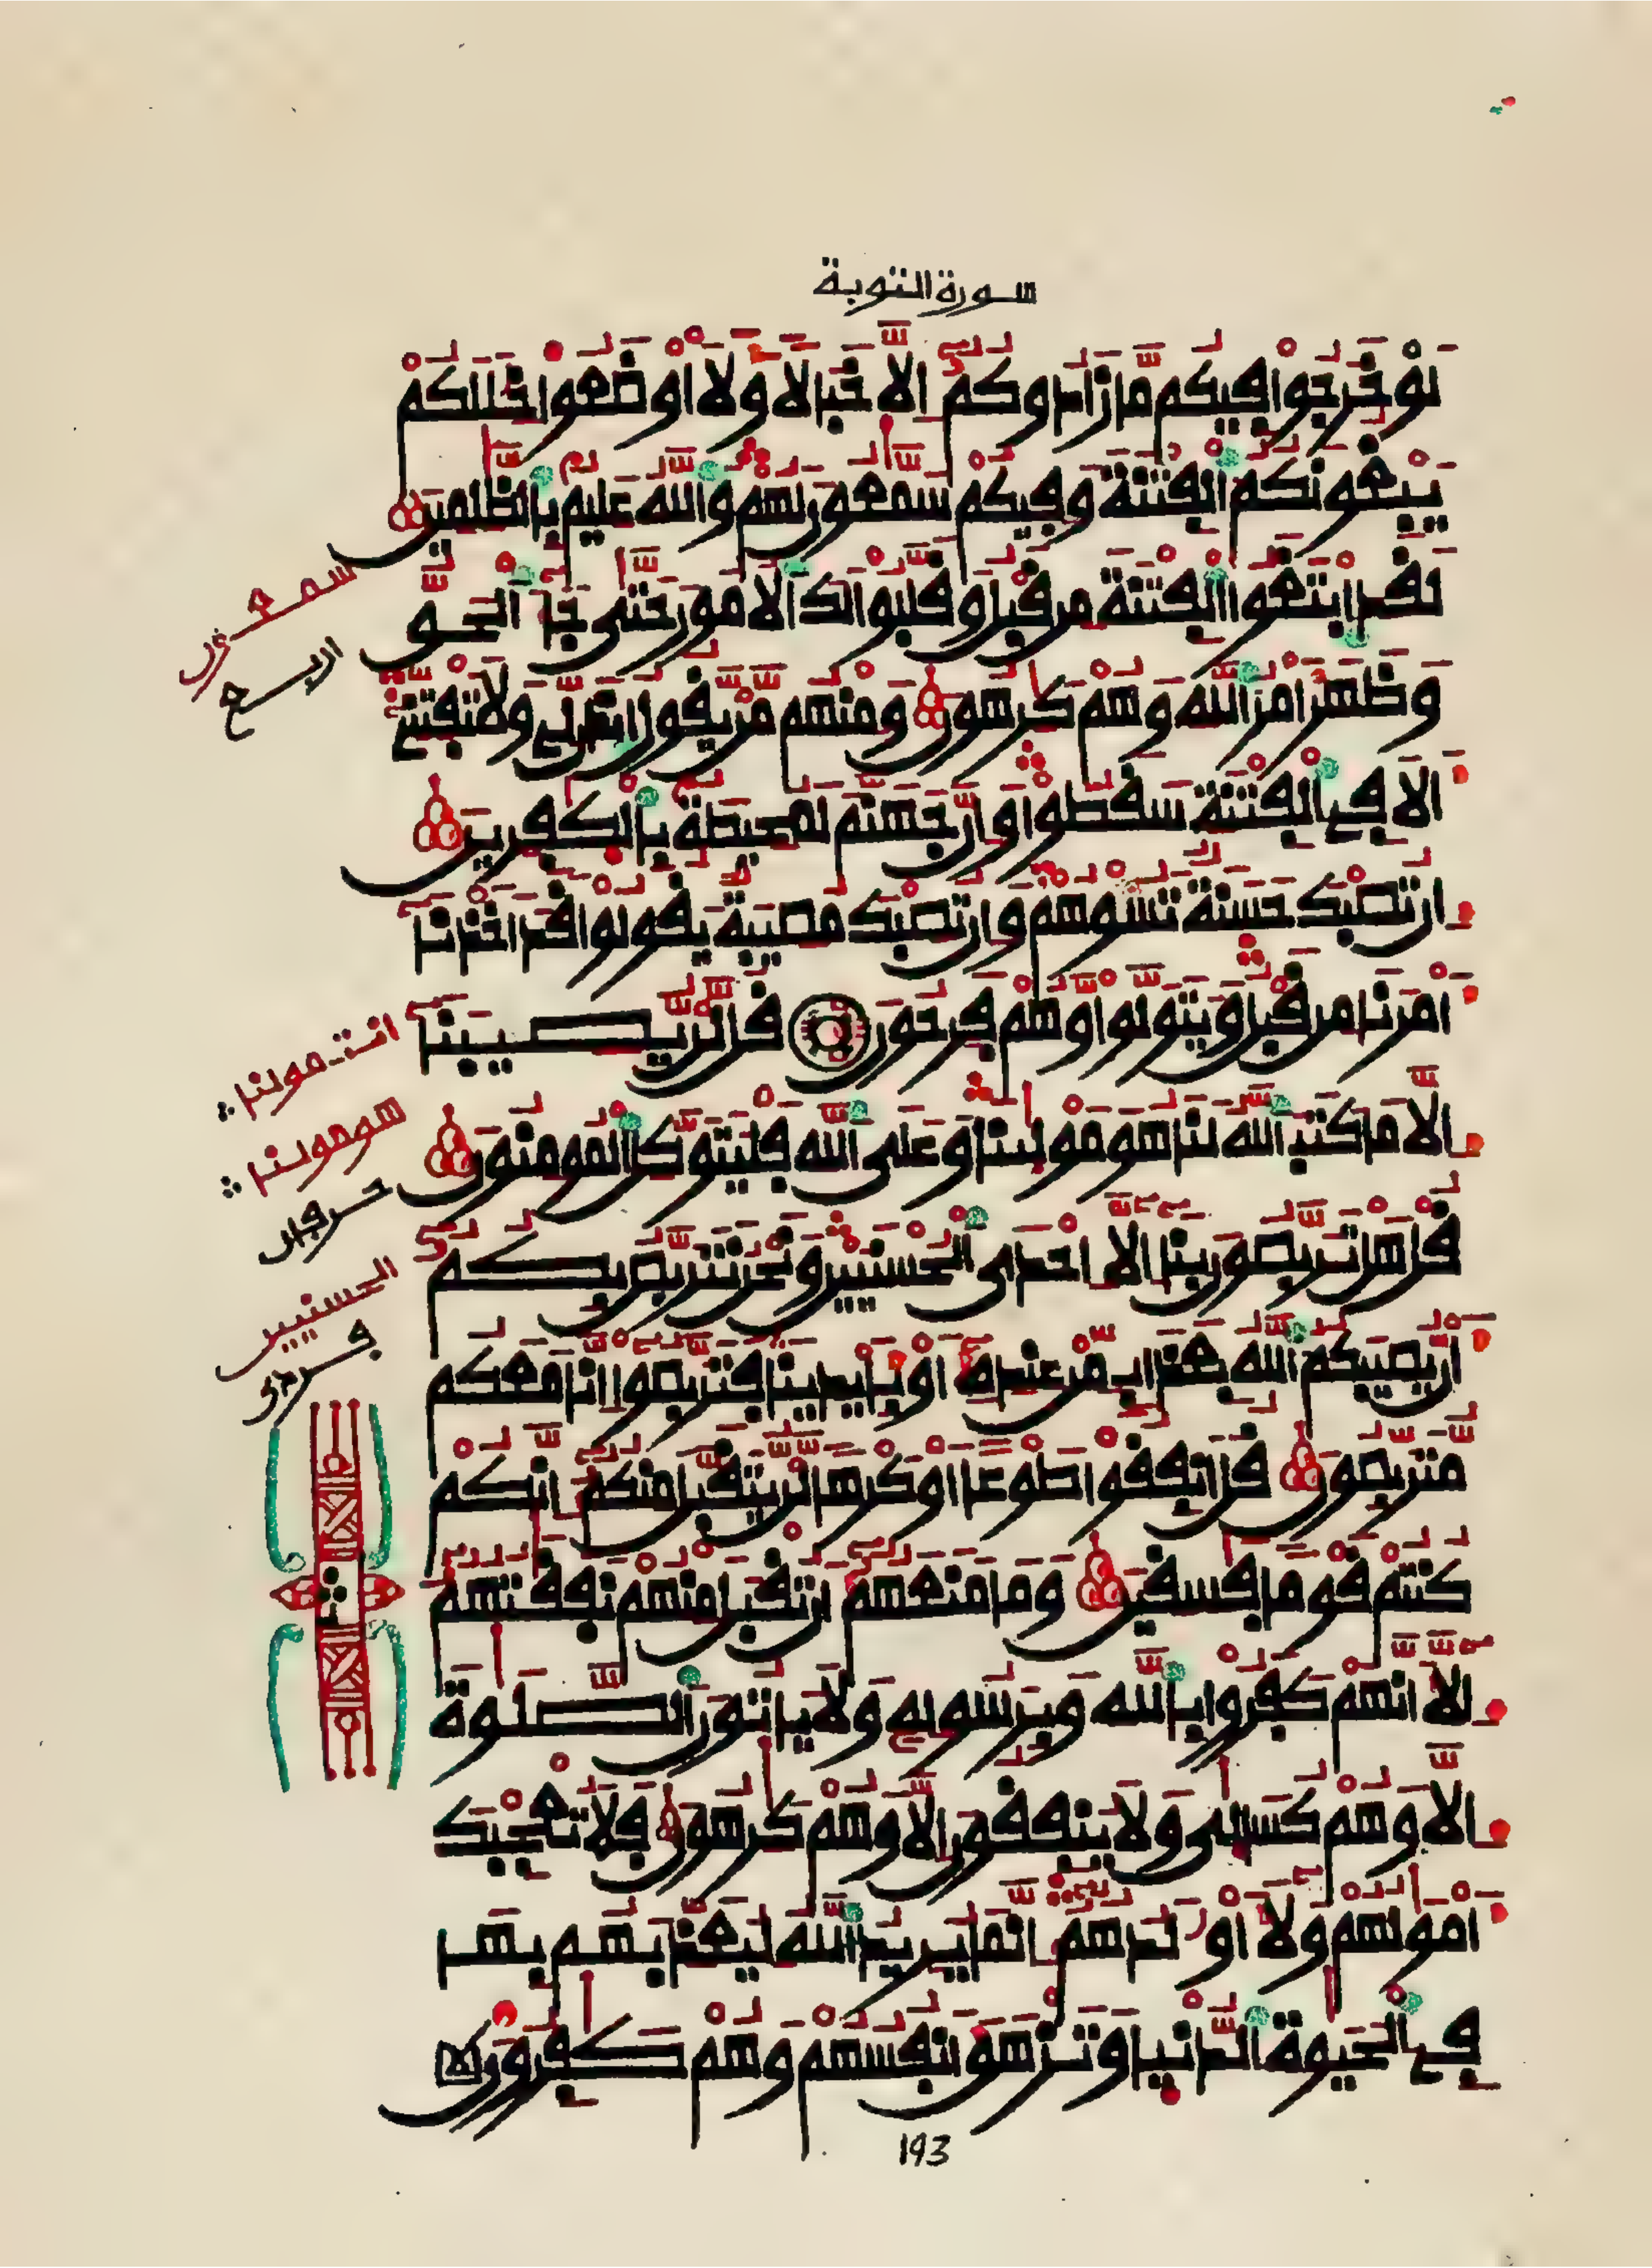 سورة التوبة
لَوْ خَرَجُوا فِيكُم مَّا زَادُوكُمْ إِلَّا خَبَالًا وَلَأَوْضَعُوا خِلَلَكُمْ
يَبْغُونَكُمُ الْفِتْنَةَ وَفِيكُمْ سَمَّعُونَ لَهُمْ وَاللَّهُ عَلِيمٌ بِالظَّلِمِينَ
لَقَدِ ابْتَغَوُا الْفِتْنَةَ مِن قَبْلُ وَقَلَّبُوا لَكَ الْأُمُورَ حَتَّى جَا الْحَقُّ
وَظَهَرَ أَمْرُ اللَّهِ وَهُمْ كَرِهُونَ وَمِنْهُم مَّن يَقُولُ ائْذَن لِّي وَلَا تَفْتِنِّي
أَلَا فِي الْفِتْنَةِ سَقَطُوا وَإِنَّ جَهَنَّمَ لَمُحِيطَةٌ بِالْكَفِرِينَ
إِن تُصِبْكَ حَسَنَةٌ تَسُؤْهُمْ وَإِن تُصِبْكَ مُصِيبَةٌ يَقُولُوا قَدْ أَخَذْنَا
أَمْرَنَا مِن قَبْلُ وَيَتَوَلَّوا وَّهُمْ فَرِحُونَ قُل لَّن يُصِيبَنَا
إِلَّا مَا كَتَبَ اللَّهُ لَنَا هُوَ مَوْلَينَا وَعَلَى اللَّهِ فَلْيَتَوَكَّلِ الْمُومِنُونَ
قُلْ هَلْ تَرَبَّصُونَ بِنَا إِلَّا إِحْدَى الْحُسْنَيَيْنِ وَنَحْنُ نَتَرَبَّصُ بِكُمْ
أَن يُصِيبَكُمُ اللَّهُ بِعَذَابٍ مِّنْ عِندِهِ أَوْ بِأَيْدِينَا فَتَرَبَّصُوا إِنَّا مَعَكُم
مُّتَرَبِّصُونَ قُلْ أَنفِقُوا طَوْعًا أَوْ كَرْهًا لَّن يُتَقَبَّلَ مِنكُمْ إِنَّكُمْ
كُنتُمْ قَوْمًا فَسِقِينَ وَمَا مَنَعَهُمْ أَن تُقْبَلَ مِنْهُمْ نَفَقَتُهُمْ
إِلَّا أَنَّهُمْ كَفَرُوا بِاللَّهِ وَبِرَسُولِهِ وَلَا يَاتُونَ الصَّلَوةَ
إِلَّا وَهُمْ كُسَالَى وَلَا يُنفِقُونَ إِلَّا وَهُمْ كَرِهُونَ فَلَا تُعْجِبْكَ
أَمْوَلُهُمْ وَلَا أَوْلَدُهُمْ إِنَّمَا يُرِيدُ اللَّهُ لِيُعَذِّبَهُم بِهَا
فِي الْحَيَوةِ الدُّنْيَا وَتَزْهَقَ أَنفُسُهُمْ وَهُمْ كَفِرُونَ
سمعون
اربع
انت مولنا
هو مولنا
حرفان
الحسنيين
فردى
193